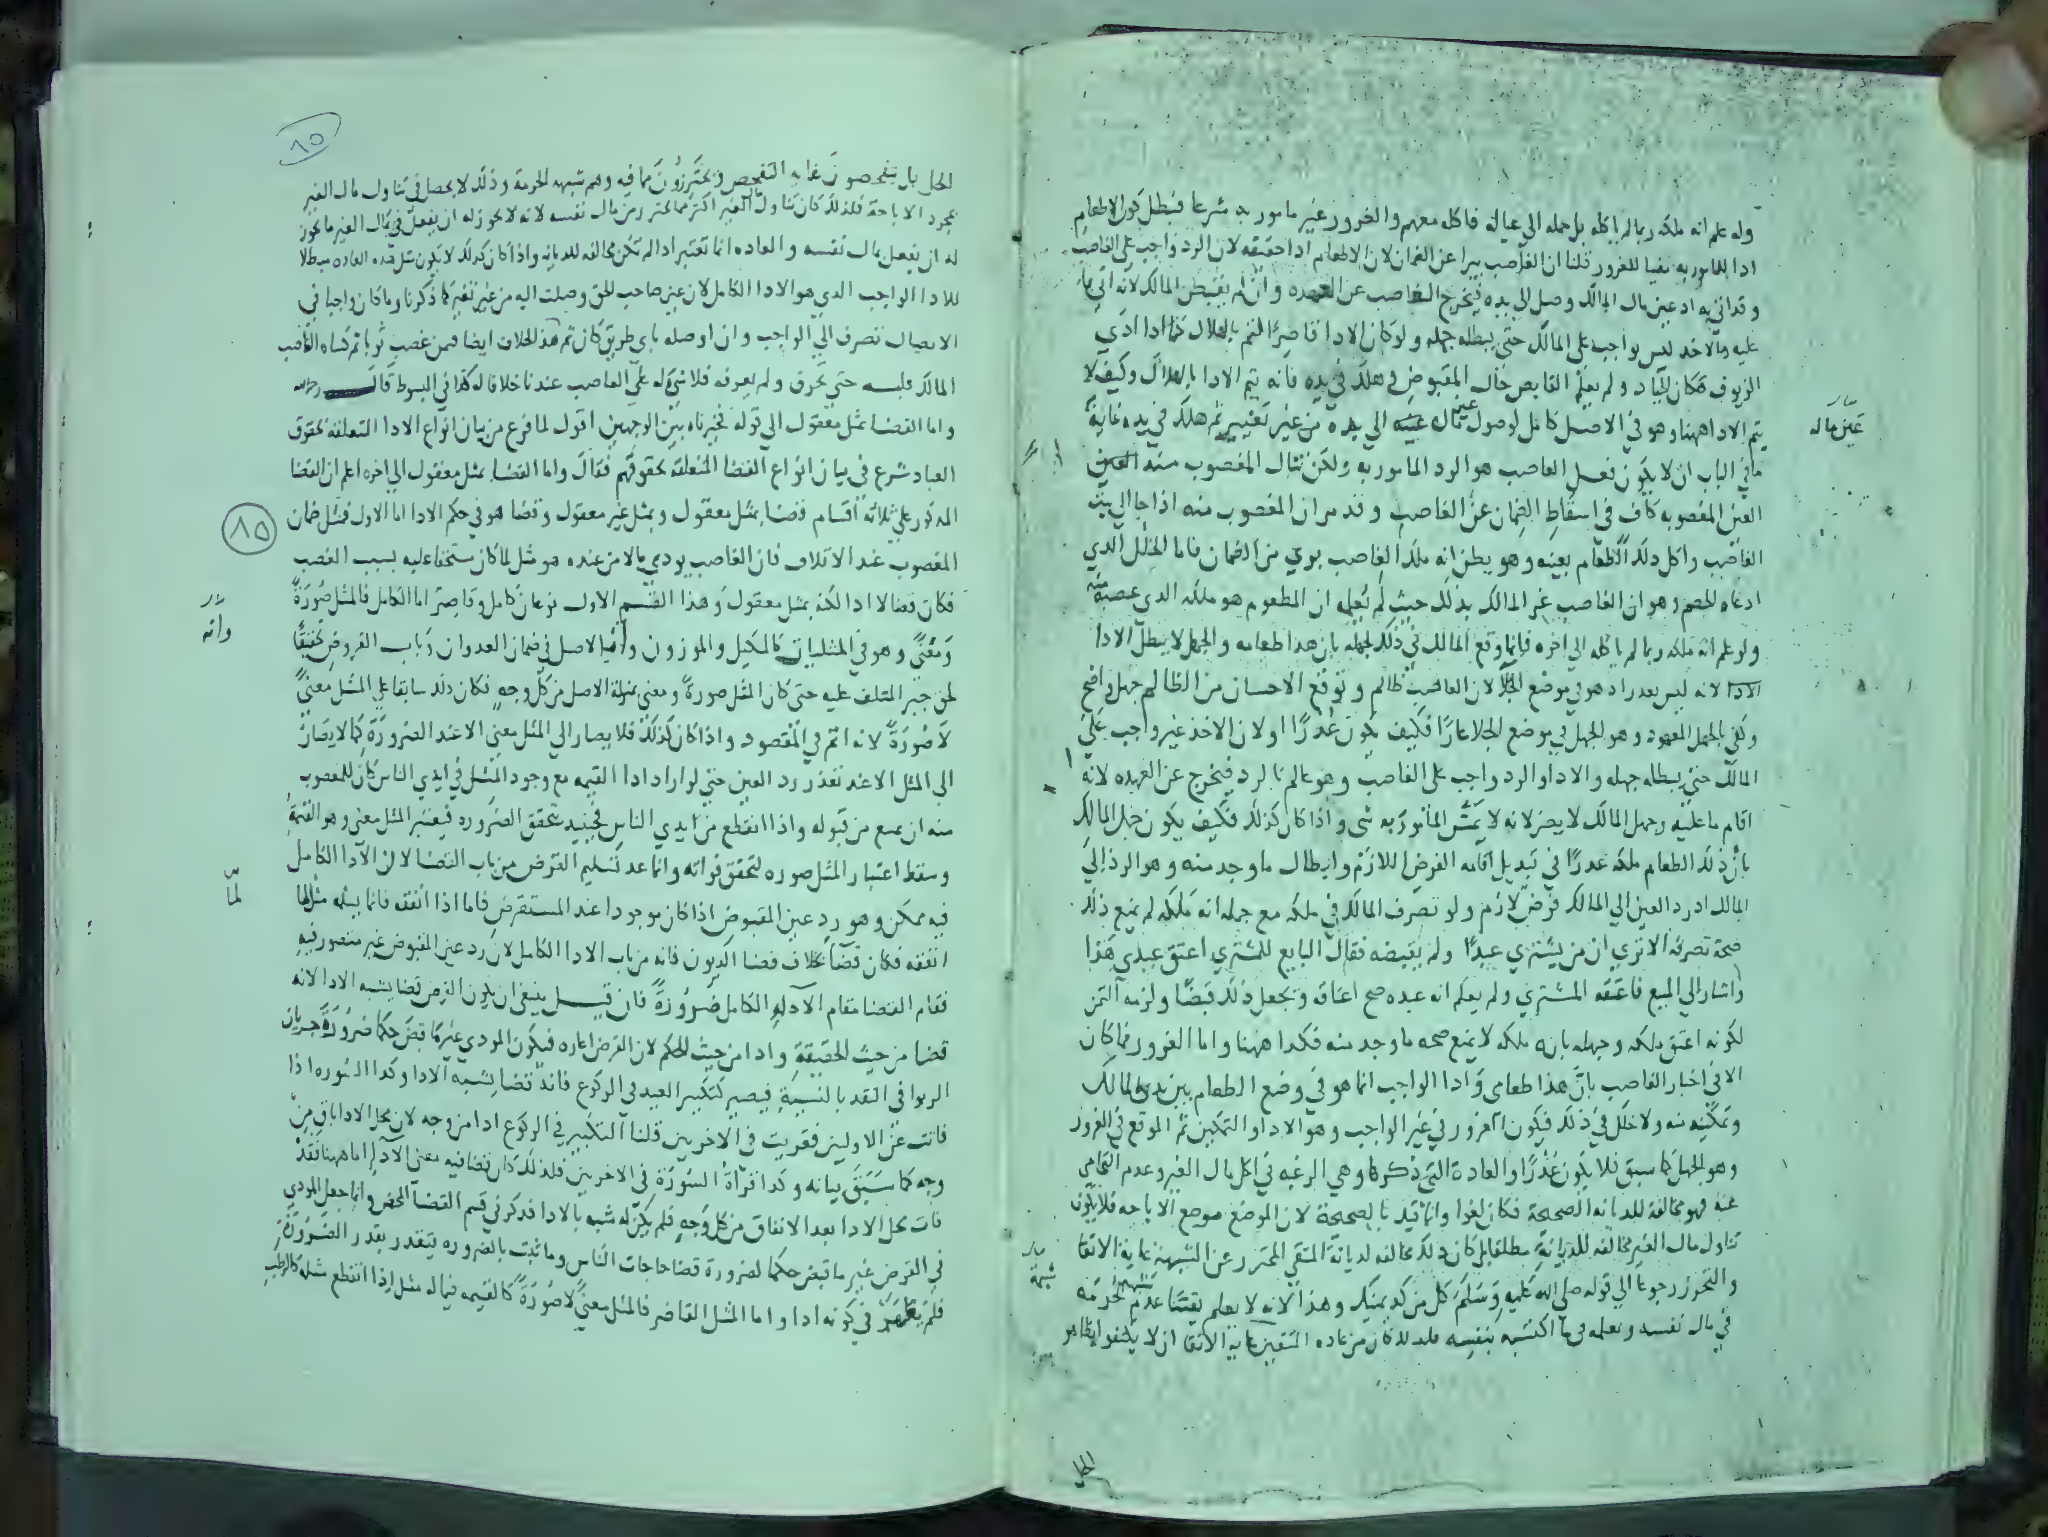 وله علم انه ملكه ربما لم ياكله بل حمله الي عياله فاكله معهم والغرور غير مامور به شرعا فبطل كون الاطعام
ادا للمامور به نفيا للغرور قلنا ان الغاصب يبرا عن الضمان لان الاطعام ادا حقيقة لان الرد واجب علي الغاصب
وقد اتي به اذ عين مال المالك وصل الي يده فيخرج الغاصب عن العهده وان لم يقبض المالك لانه اتي بما
عليه والاخذ ليس بواجب علي المالك حتي يبطله جهله ولو كان الادا قاصرا لتم بالهلاك كما اذا ادي
الزيوف مكان الجياد ولم يعلم القابض حال المقبوض وهلك في يده فانه يتم الادا بالهلاك وكيف لا
يتم الادا ههنا وهو في الاصل كامل لوصول عين ماله الي يده من غير تغيير ثم هلك في يده غاية
ما في الباب ان لا يكون فعل الغاصب هو الرد المامور به ولكن تناول المغصوب منه العين
العين المغصوبه كاف في اسقاط الضمان عن الغاصب وقد مر ان المغصوب منه اذا جا الي بيت
الغاصب واكل ذلك الطعام بعينه وهو يظن انه ملك الغاصب بري من الضمان فاما الخلل الذي
ادعاه الخصم وهو ان الغاصب غر المالك بذلك حيث لم يعلمه ان المطعوم هو ملكه الذي غصبه منه
ولو علم انه ملكه ربما لم ياكله الي اخره فانما وقع المالك في ذلك لجهله بان هذا طعامه والجهل لا يبطل الادا
الادا لانه ليس بعذر اذ هو في موضع الجلا لان الغاصب ظالم وتوقع الاحسان من الظالم جهل واضح
وكفي بالجهل المعهود وهو الجهل في موضع الجلا عارا فكيف يكون عذرا او لان الاخذ غير واجب علي
المالك حتي يبطله جهله والادا والرد واجب علي الغاصب وهو عالم بالرد فيخرج عن العهده لانه
اقام ما عليه وجهل المالك لا يضر لانه لا يمس المامور به شي واذا كان كذلك فكيف يكون جهل المالك
بان ذلك الطعام ملكه عذرا في تبديل اقامه الفرض اللازم وابطال ما وجد منه وهو الرد الي
المالك اذ رد العين الي المالك فرض لازم ولو تصرف المالك في ملكه مع جهله انه ملكه لم يمنع ذلك
صحة تصرفه الا تري ان من يشتري عبدا ولم يقبضه فقال البايع للمشتري اعتق عبدي هذا
واشار الي المبيع فاعتقه المشتري ولم يعلم انه عبده صح اعتاقه ويجعل ذلك قبضا ولزمه الثمن
لكونه اعتق ملكه وجهله بانه ملكه لا يمنع صحه ما وجد منه فكذا ههنا واما الغرور فما كان
الا في اخبار الغاصب بان هذا طعامي وادا الواجب انما هو في وضع الطعام بين يدي المالك
وتمكينه منه ولا خلل في ذلك فيكون الغرور في غير الواجب وهو الادا والتمكين ثم الموقع في الغرور
وهو الجهل كما سبق فلا يكون عذرا والعادة التي ذكرها وهي الرغبه في اكل مال الغير وعدم التحامي
عنه فهو مخالفة للديانه الصحيحة فكان لغوا وانما قيد بالصحيحة لان الموضع موضع الاباحه فلا يكون
تناول مال الغير مخالفه للديانة مطلقا بل كان ذلك مخالفه لديانة المتقي المحترز عن الشبهة غاية الاتقا
والتحرز رجوعا الي قوله صلي الله عليه وسلم كل من كد يمينك وهذا لانه لا يعلم يقينا عدم شبهة حرمه
في مال نفسه وبعلمه في ما اكتسبه بنفسه فلذلك كان من عاده المتقين غاية الاتقا ان لا يكتفوا بظاهر
عين ماله
شبهة
الحل
٨٥
الحل بل يتفحصون غاية التفحص ويحترزون مما فيه وهم شبهه الحرمة وذلك لا يحصل في تناول مال الغير
بمجرد الاباحة فلذلك كان تناول مال الغير اكثر مما يحترز من مال نفسه لانه لا يجوز له ان يفعل في مال الغير ما يجوز
له ان يفعل بمال نفسه والعاده انما تعتبر اذا لم تكن مخالفه للديانه واذا كان كذلك لا يكون مثل هذه العاده مبطلا
للادا الواجب الذي هو الادا الكامل لان عين صاحب الحق وصلت اليه من غير تغيير كما ذكرنا وما كان واجبا في
الايصال تصرف الي الواجب وان اوصله باي طريق كان ثم هذا الخلاف ايضا فيمن غصب ثوبا ثم كساه الغاصب
المالك فلبسه حتي تخرق ولم يعرفه فلا شي له علي الغاصب عندنا خلافا له كذا في المبسوط قال رحمه الله
واما القضا بمثل معقول الي قوله تخيرناه بين الوجهين اقول لما فرغ من بيان انواع الادا المتعلقة بحقوق
العباد شرع في بيان انواع القضا المتعلقة بحقوقهم فقال واما القضا بمثل معقول الي اخره اعلم ان القضا
المذكور علي ثلاثه اقسام قضا بمثل معقول وبمثل غير معقول وقضا هو في حكم الادا اما الاول فمثل ضمان
المغصوب عند الاتلاف فان الغاصب يودي مالا من عنده هو مثل لما كان مستحقا عليه بسبب الغصب
فكان قضا لا ادا لكنه بمثل معقول وهذا القسم الاول نوعان كامل وقاصر اما الكامل فالمثل صورة
ومعني وهو في المثليات كالمكيل والموزون وانه الاصل في ضمان العدوان وباب القروض تحقيقا
لحق جبر المتلف عليه حتي كان المثل صورة ومعني بمنزلة الاصل من كل وجه فكان ذلك سابقا علي المثل معني
لا صورة لانه اتم في المقصود واذا كان كذلك فلا يصار الي المثل معني الا عند الضرورة كما لا يصار
الي المثل الا عند تعذر رد العين حتي لو اراد ادا القيمه مع وجود المثل في ايدي الناس كان للمغصوب
منه ان يمتنع من قبوله واذا انقطع من ايدي الناس فحينيذ تتحقق الضروره فيعتبر المثل معني وهو القيمة
وسقط اعتبار المثل صوره لتحقق فواته وانما عد تسليم القرض من باب القضا لان الادا الكامل
فيه ممكن وهو رد عين المقبوض اذا كان موجودا عند المستقرض فاما اذا انفقه فانما يسلم مثل لما
انفقه فكان قضا بخلاف قضا الديون فانه من باب الادا الكامل لان رد عين المقبوض غير متصور فيه
فقام القضا مقام الادا الكامل ضرورة فان قيل ينبغي ان يكون القرض قضا يشبه الادا لانه
قضا من حيث الحقيقة وادا من حيث الحكم لان القرض اعاره فيكون المودي عين ما قبض حكما ضرورة جريان
الربوا في النقد بالنسيية فيصير كتكبير العيد في الركوع فانه قضا يشبه الادا وكذا السوره اذا
فاتت عن الاوليين فقريت في الاخريين قلنا التكبير في الركوع ادا من وجه لان محل الادا باق من
وجه كما سبق بيانه وكذا قراة السورة في الاخريين فلذلك كان قضا فيه معني الادا اما ههنا فقد
فات محل الادا بعد الانفاق من كل وجه فلم يكن له شبه بالادا فذكر في قسم القضا المحض وانما جعل المودي
في القرض غير ما قبض حكما لضرورة قضا حاجات الناس وما ثبت بالضروره يتقدر بقدر الضرورة
فلم يظهر في كونه ادا واما المثل القاصر فالمثل معني لا صورة كالقيمه فيما له مثل اذا انقطع مثله كالرطب
٨٥
وانه
لما